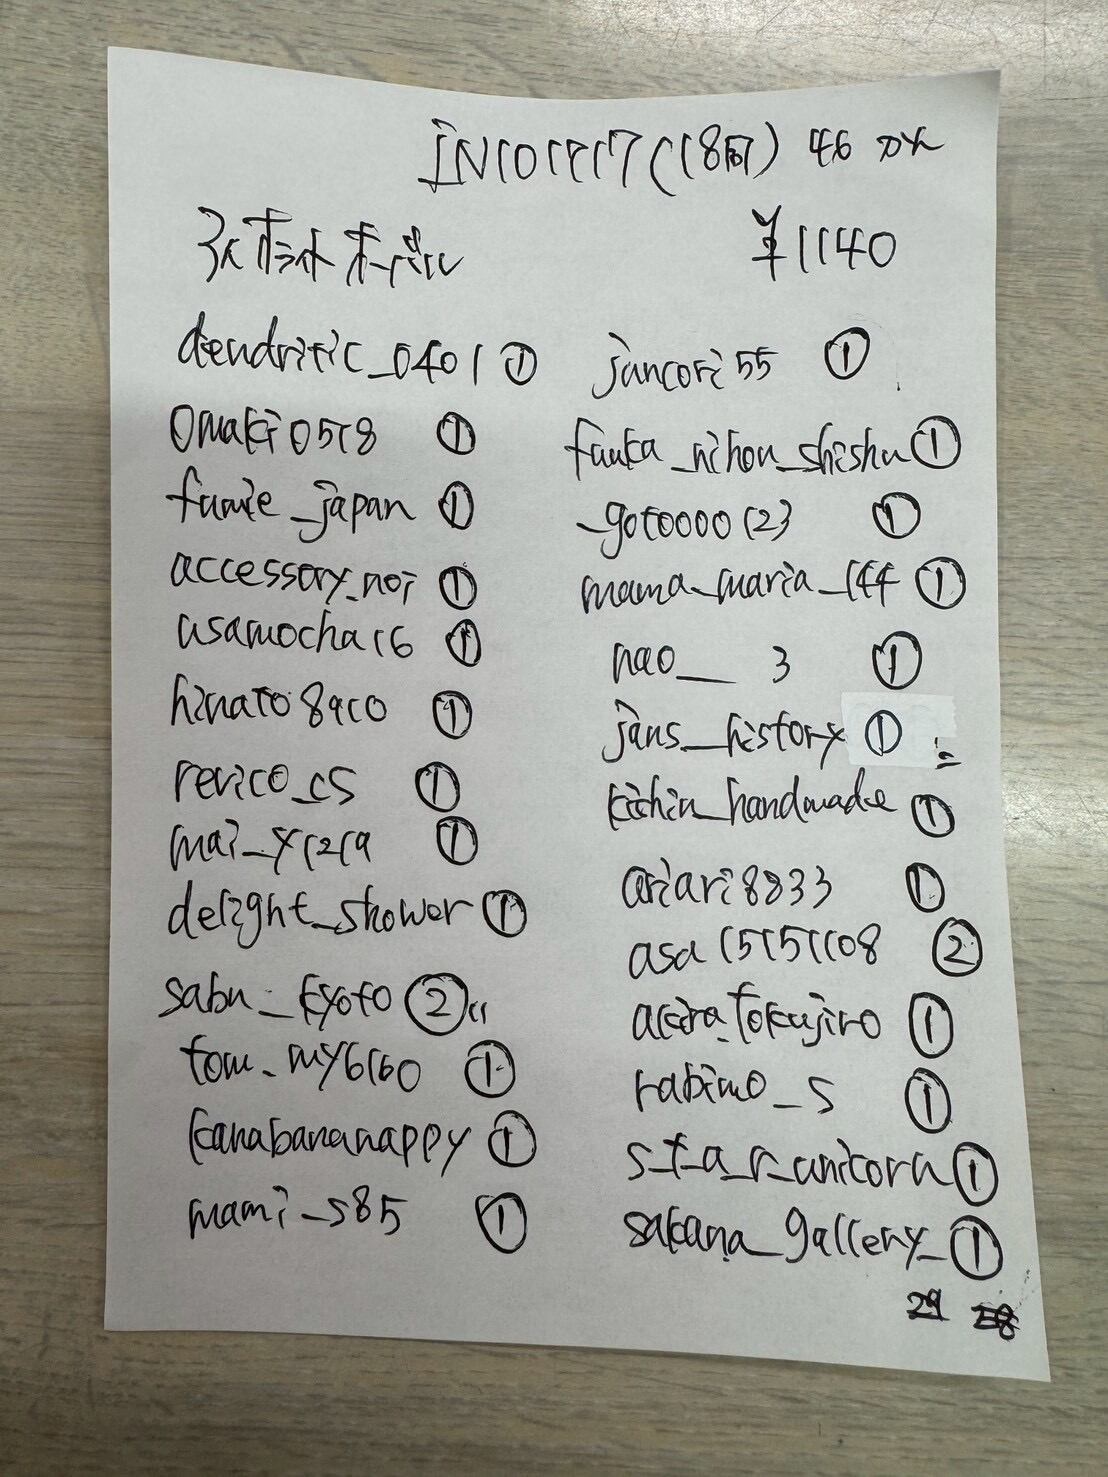 IN101917(18冏) 46 カメ
¥1140
dendritic_0401 ①
omaki0518 ①
fumie_japan ①
accessory_noi ①
usamocha16 ①
hinato8910 ①
revico_15 ①
mai_y1219 ①
delight_shower ①
sabu_kyoto ②
tom_my6160 ①
kanabananappy ①
mami_s85 ①
jancori55 ①
fuuka_nihon_shishu ①
_goto0000123 ①
mama_maria_144 ①
nao__ 3 ①
jans_history ①
kichin_handmade ①
ariari8833 ①
asa15151108 ②
akira_tokujiro ①
rabimo_s ①
s_t_a_r_unicorn ①
sakana_gallery_ ①
29